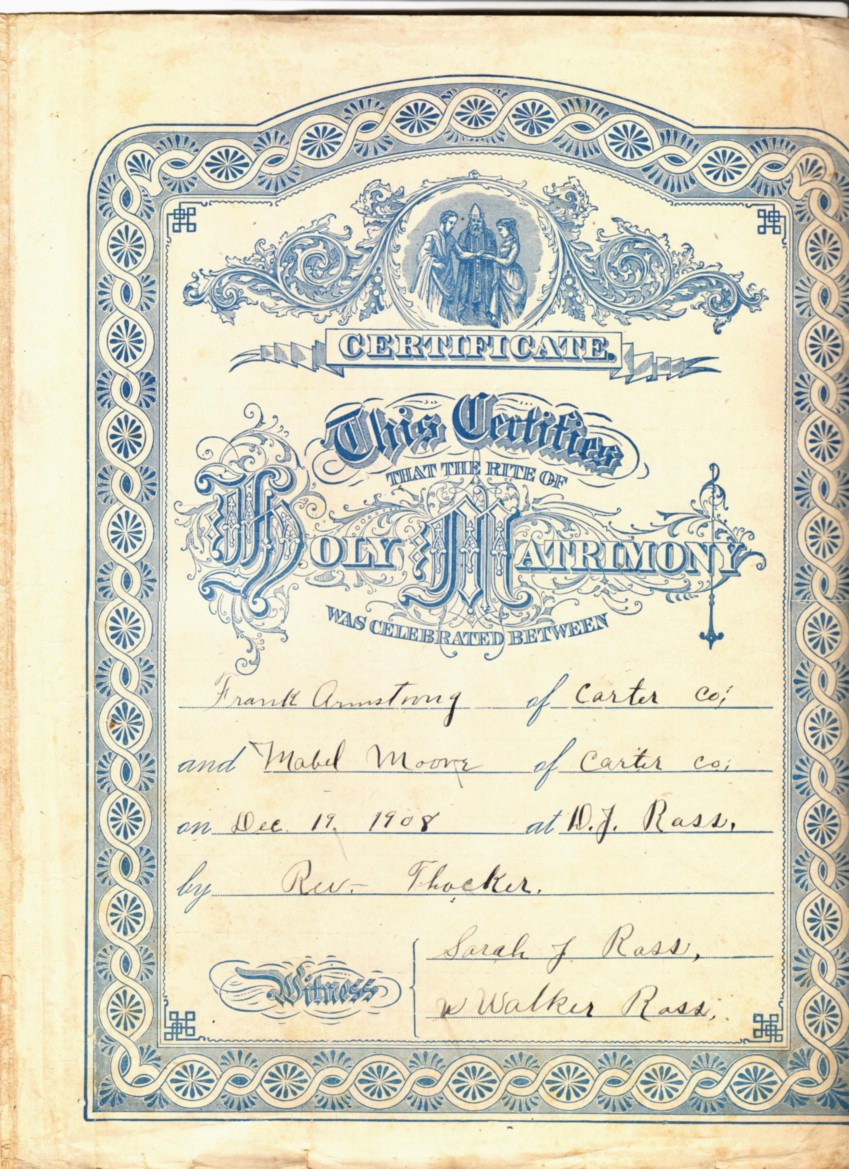 CERTIFICATE.
This Certifies
THAT THE RITE OF
HOLY MATRIMONY
WAS CELEBRATED BETWEEN
Frank Armstrong of Carter Co;
and Mabel Moore of Carter Co;
on Dec. 19. 1908 at D.J. Ross,
by Rev. Thacker.
Witness
Sarah J Ross,
W Walker Ross,